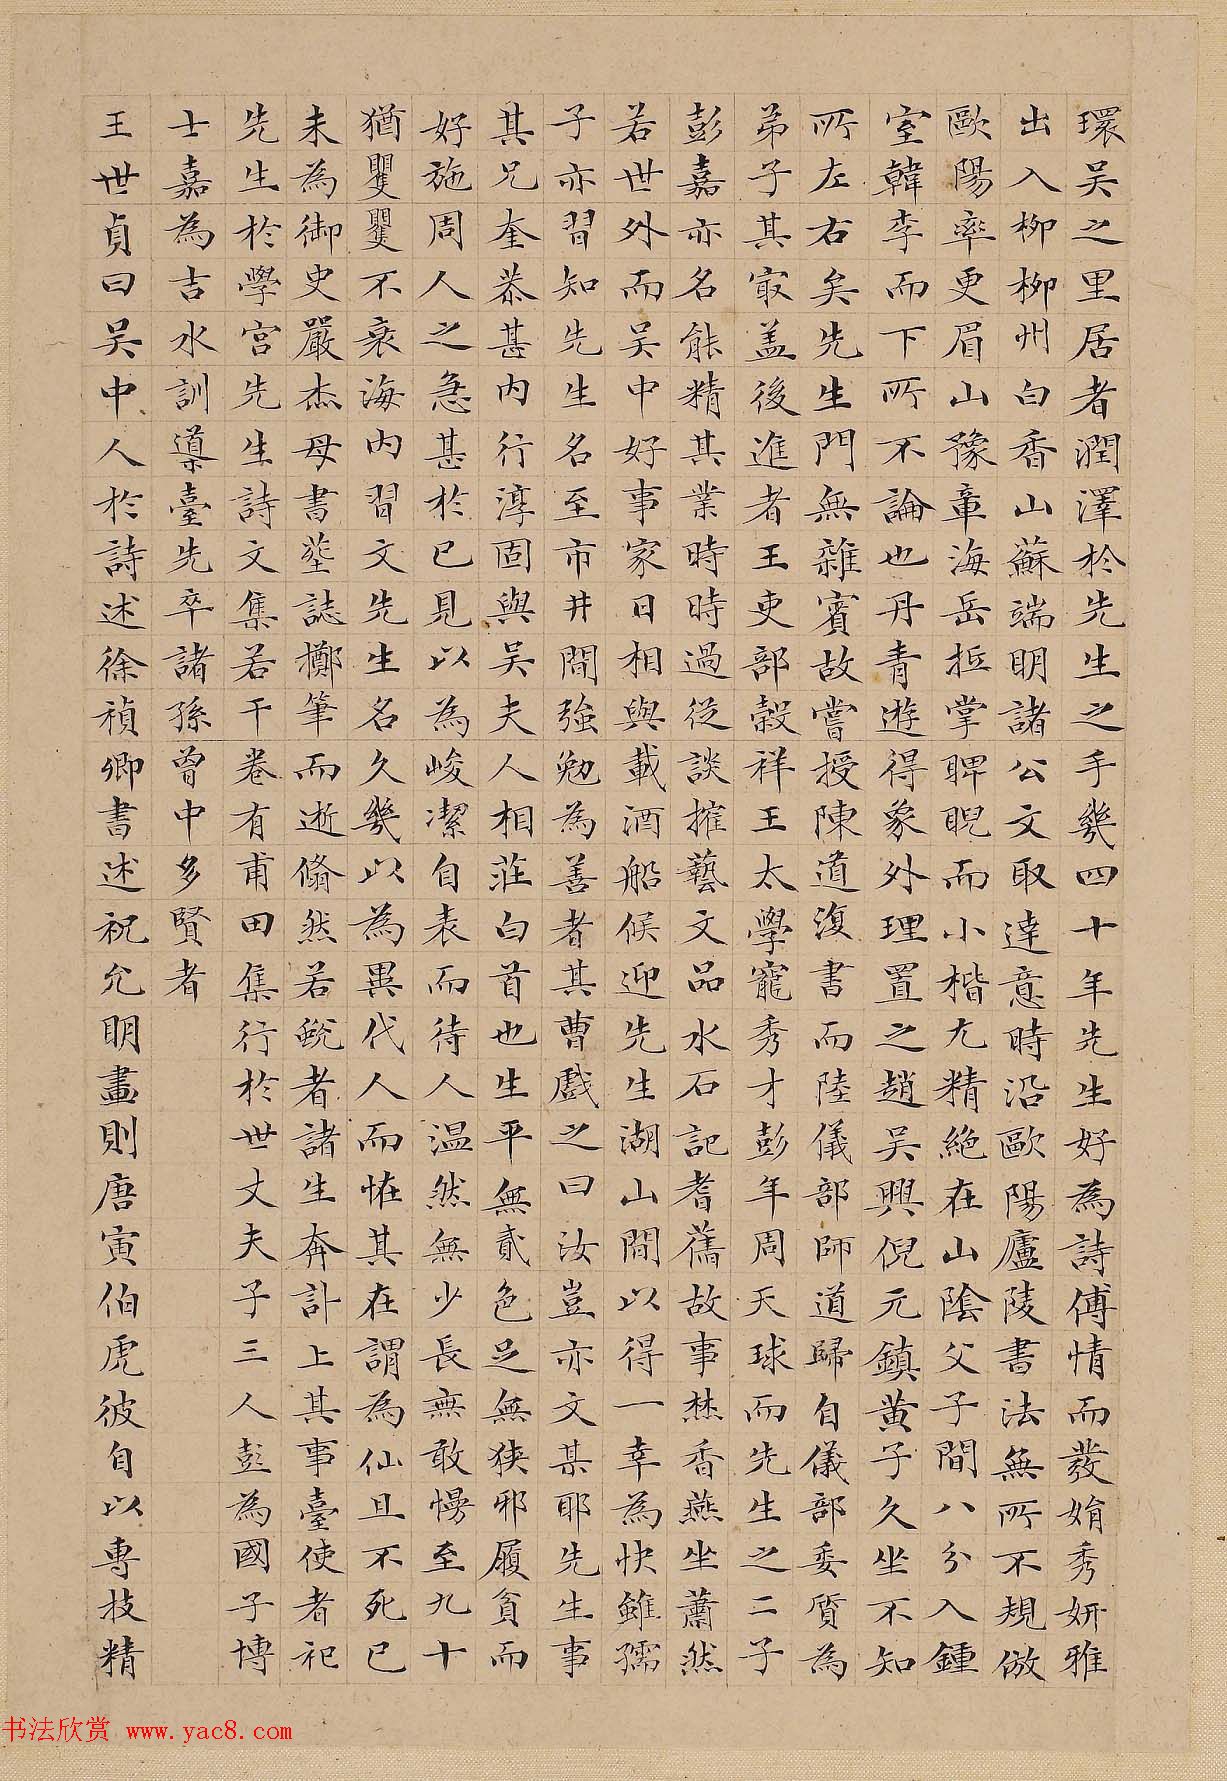 環吳之里居者潤澤於先生之手幾四十年先生好為詩傅情而發娟秀妍雅
出入柳柳州白香山蘇端明諸公文取達意時沿歐陽廬陵書法無所不規倣
歐陽率更眉山豫章海岳抵掌睥睨而小楷尤精絕在山陰父子間八分入鍾
室韓李而下所不論也丹青遊得象外理置之趙吳興倪元鎮黃子久坐不知
所左右矣先生門無雜賓故嘗授陳道復書而陸儀部師道歸自儀部委質為
弟子其最蓋後進者王吏部榖祥王太學寵秀才彭年周天球而先生之二子
彭嘉亦名能精其業時時過從談搉藝文品水石記耆舊故事焚香燕坐蕭然
若世外而吳中好事家日相與載酒船候迎先生湖山間以得一幸為快雖孺
子亦習知先生名至市井間強勉為善者其曹戲之曰汝豈亦文某耶先生事
其兄奎恭甚內行淳固與吳夫人相莊白首也生平無貳色足無狹邪履貧而
好施周人之急甚於己見以為峻潔自表而待人温然無少長無敢慢至九十
猶矍矍不衰海內習文先生名久幾以為異代人而恠其在謂為仙且不死已
未為御史嚴杰母書墓誌擲筆而逝翛然若蛻者諸生奔訃上其事臺使者祀
先生於學宮先生詩文集若干卷有甫田集行於世丈夫子三人彭為國子博
士嘉為吉水訓導臺先卒諸孫曾中多賢者
王世貞曰吳中人於詩述徐禎卿書述祝允明畫則唐寅伯虎彼自以專技精
书法欣赏 www.yac8.com